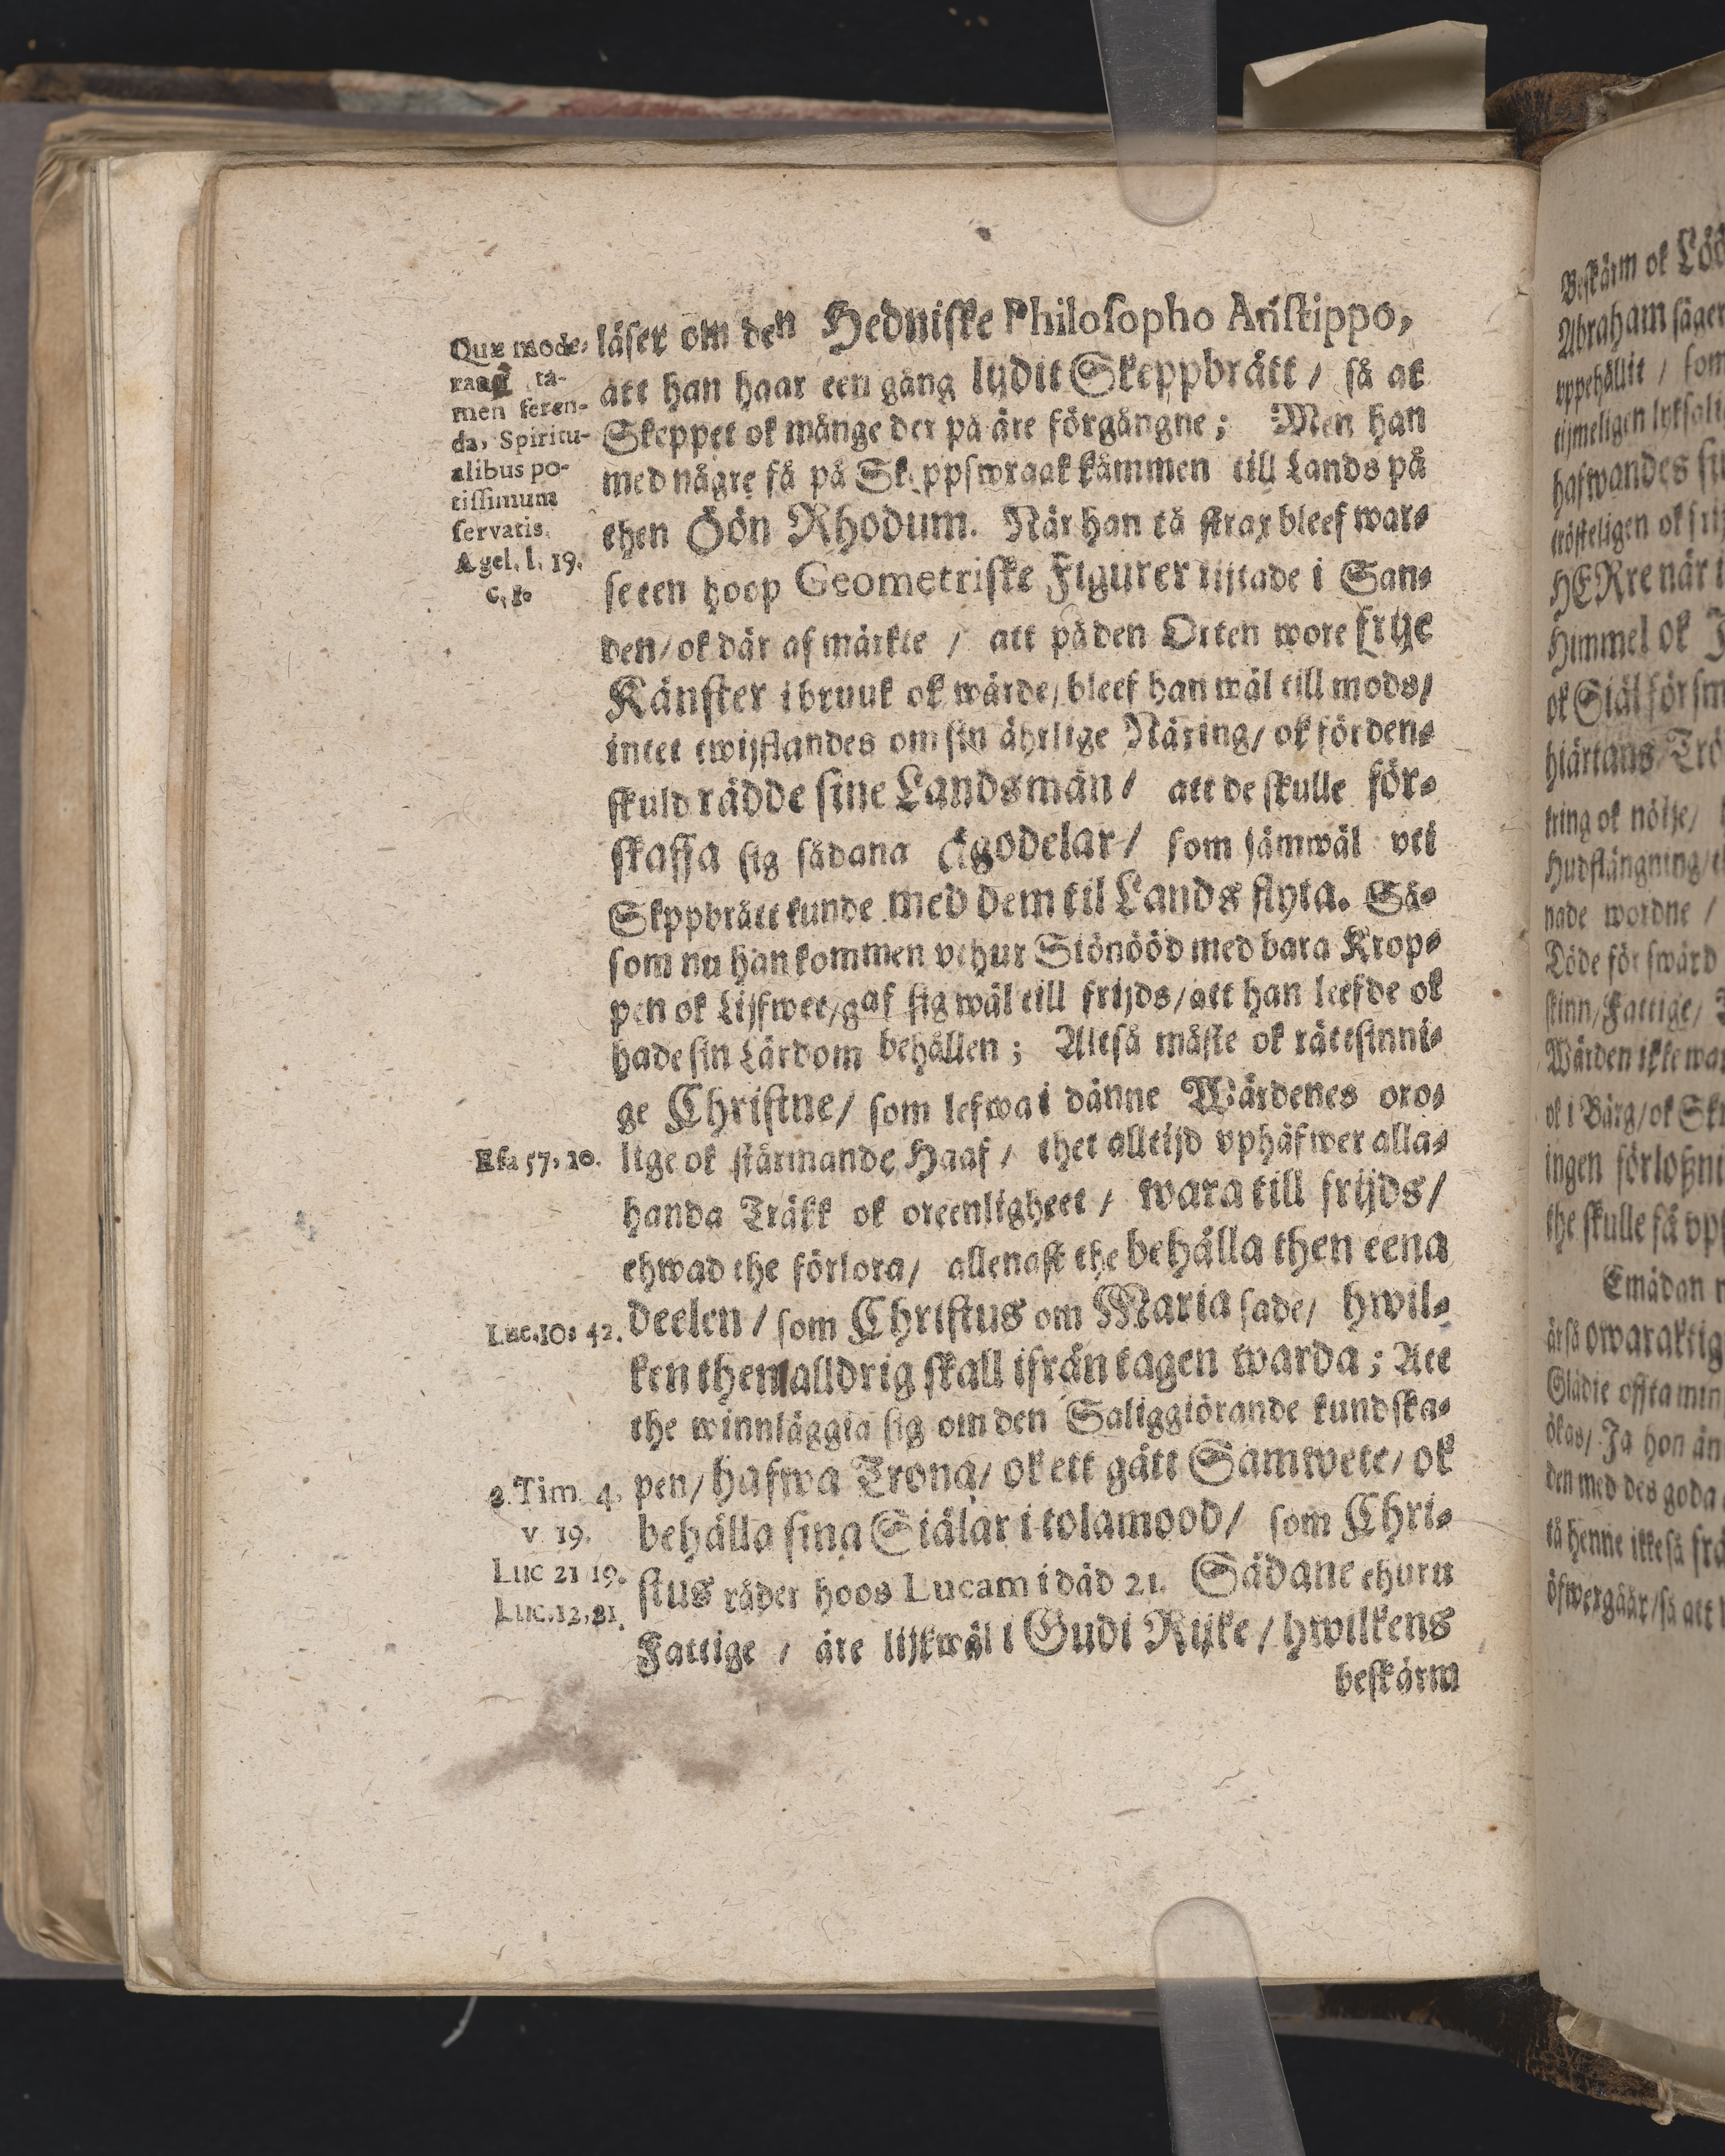 läser om den Hedniske Philosopho Aristippo,
att han haar een gång lydit Skeppbrått / så at
Skeppet ok månge der på äre förgångne; Men han
med någre få på Skeppswraak kåmmen till Lands på
then Öön Rhodum. När han tå strax bleef war-
se een hoop Geometriske Figurer rijtade i San-
den / ok där af märkte / att på den Orten wore frije
Känster i bruuk ok wärde / bleef han wäl till mods /
intet twijflandes om sin ährlige Näring / ok förden-
skuld rådde sine Landsmän / att de skulle för-
skaffa sig sådana Ägodelar / som jämwäl vti
Skppbrått kunde med dem til Lands flyta. Så-
som nu han kommen vthur Siönööd med bara Krop-
pen ok Lijfwet / gaf sig wäl till frijds / att han leefde ok
hade sin Lärdom behållen; Altså måste ok rättsinni-
ge Christne / som lefwa i dänne Wärdenes oro-
lige ok stårmande Haaf / thet alltijd vphäfwer alla-
handa Träkk ok oreenligheet / wara till frijds /
ehwad the förlora / allenast the behålla then eena
deelen / som Christus om Maria sade / hwil-
ken them alldrig skall ifrån tagen warda; Att
the winnläggia sig om den Saliggiörande kundska-
pen / hafwa Trona / ok ett gått Samwete / ok
behålla sina Siälar i tolamood / som Chri-
stus råder hoos Lucam i däd 21. Sådane ehuru
Fattige / äre lijkwäl i Gudi Rijke / hwilkens
beskärm
Quæ mode-
ta-
men feren-
da, Spiritu-
alibus po-
tissimum
servatis.
A gel. l. 19.
Esa 57, 20.
Luc. 10: 42.
2. Tim. 4,
v 19.
Luc 21 19.
Luc. 12, 21.
Beskärm ok
Abraham säger
vppehållit / som
tijmeligen
hafwandes
trösteligen ok
HERre när
Himmel ok
ok Siäl
hiärtans
kring ok nöije /
Hudflängning /
nade wordne /
Döde för swärd
skinn / Fattige /
Wärden ikke
ok i Bärg / ok
ingen
the skulle få
Emädan
är så
Glädie offta
ökas / Ja hon än
den med des goda
tå henne ikke så
öfwergåår / så att